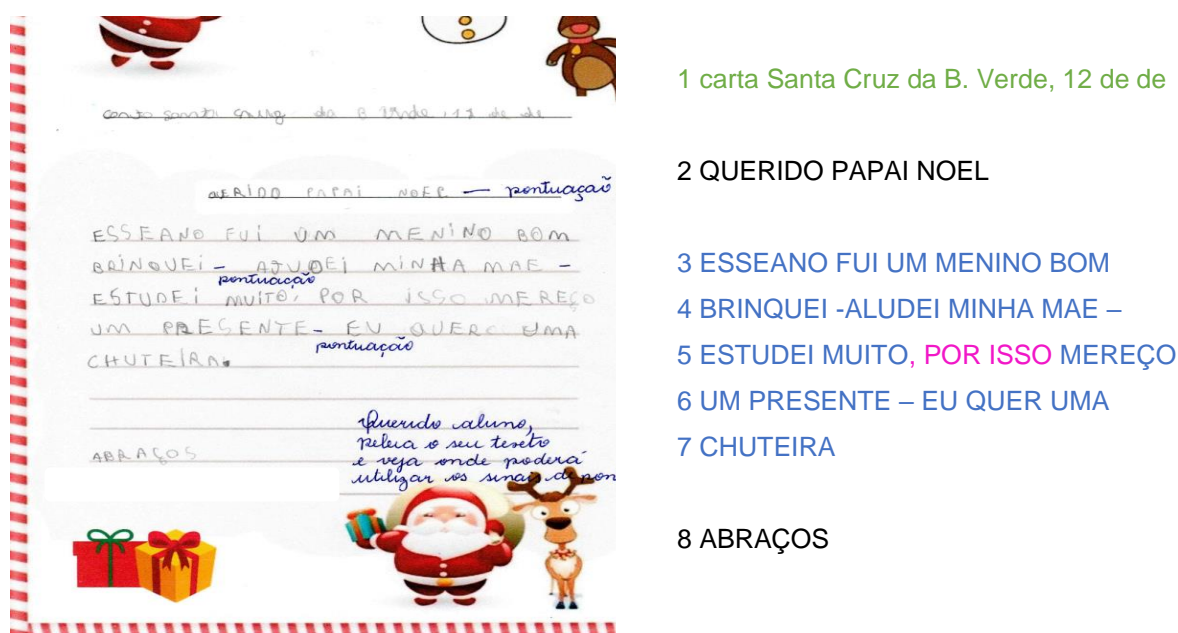 conta santa cruz da B Verde, 12 de de
QUERIDO PAPAI NOEL — pontuação
ESSEANO FUI UM MENINO BOM
BRINQUEI - AJUDEI MINHA MAE -
pontuação
ESTUDEI MUITO, POR ISSO MEREÇO
UM PRESENTE - EU QUERO UMA
pontuação
CHUTEIRA.
Querido aluno,
releia o seu texto
e veja onde poderá
utilizar os sinais de pon
ABRAÇOS
1 carta Santa Cruz da B. Verde, 12 de de
2 QUERIDO PAPAI NOEL
3 ESSEANO FUI UM MENINO BOM
4 BRINQUEI -ALUDEI MINHA MAE –
5 ESTUDEI MUITO, POR ISSO MEREÇO
6 UM PRESENTE – EU QUER UMA
7 CHUTEIRA
8 ABRAÇOS